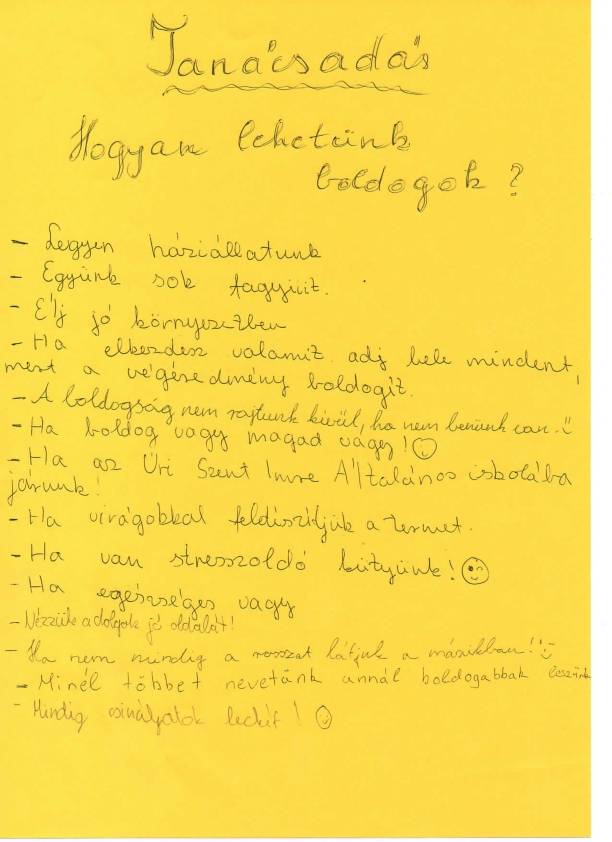 Tanácsadás
Hogyan lehetünk
boldogok?
- Legyen háziállatunk
- Együnk sok fagyiiit.
- Élj jó környezetben
- Ha elkezdesz valamit adj bele mindent,
mert a végeredmény boldogít.
- A boldogság nem rajtunk kívül, ha nem benünk van. :)
- Ha boldog vagy magad vagy! ☺
- Ha az Úri Szent Imre Általános iskolába
járunk!
- Ha virágokkal feldíszítjük a termet.
- Ha van stresszoldó kütyünk! 😉
- Ha egészséges vagy
- Nézzük a dolgok jó oldalát!
- Ha nem mindig a rosszat látjuk a másikban! :)
- Minél többet nevetünk annál boldogabbak leszünk
- Mindig csináljatok leckét! ☺